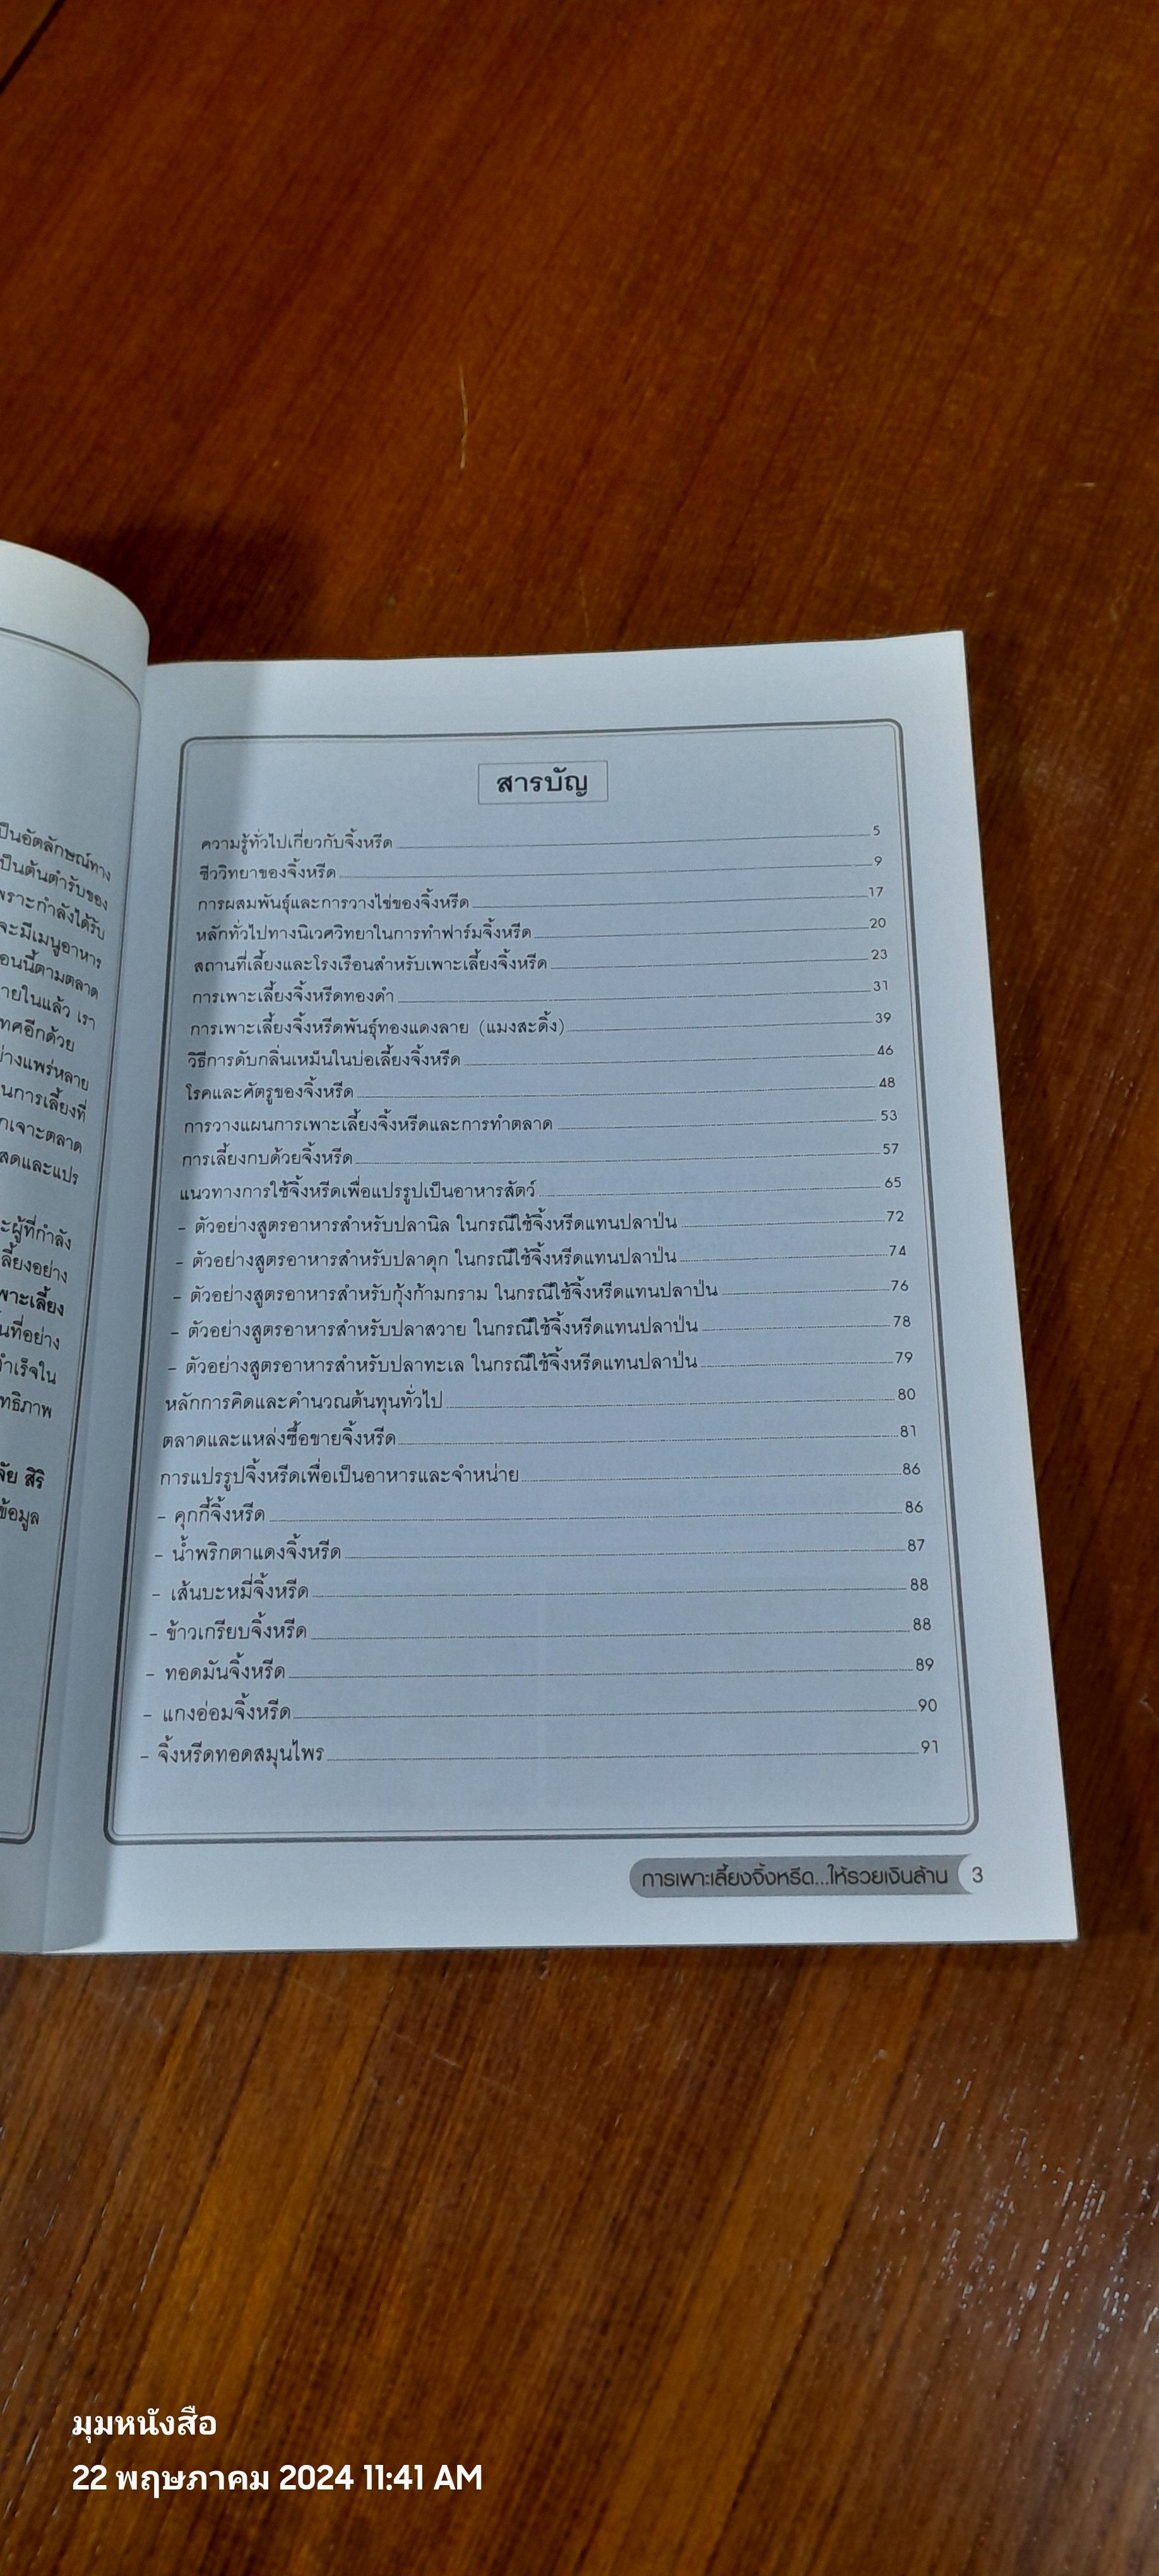 ป็นอัตลักษณ์ทาง
ป็นต้นตำรับของ
พราะกำลังได้รับ
จะมีเมนูอาหาร
อนนี้ตามตลาด
ายในแล้ว เรา
ทศอีกด้วย
ย่างแพร่หลาย
นการเลี้ยงที่
กเจาะตลาด
สดและแปร
ะผู้ที่กำลัง
ลี้ยงอย่าง
พาะเลี้ยง
นที่อย่าง
ำเร็จใน
ทธิภาพ
จัย สิริ
ข้อมูล
สารบัญ
ความรู้ทั่วไปเกี่ยวกับจิ้งหรีด 5
ชีววิทยาของจิ้งหรีด 9
การผสมพันธุ์และการวางไข่ของจิ้งหรีด 17
หลักทั่วไปทางนิเวศวิทยาในการทำฟาร์มจิ้งหรีด 20
สถานที่เลี้ยงและโรงเรือนสำหรับเพาะเลี้ยงจิ้งหรีด 23
การเพาะเลี้ยงจิ้งหรีดทองดำ 31
การเพาะเลี้ยงจิ้งหรีดพันธุ์ทองแดงลาย (แมงสะดิ้ง) 39
วิธีการดับกลิ่นเหม็นในบ่อเลี้ยงจิ้งหรีด 46
โรคและศัตรูของจิ้งหรีด 48
การวางแผนการเพาะเลี้ยงจิ้งหรีดและการทำตลาด 53
การเลี้ยงกบด้วยจิ้งหรีด 57
แนวทางการใช้จิ้งหรีดเพื่อแปรรูปเป็นอาหารสัตว์ 65
- ตัวอย่างสูตรอาหารสำหรับปลานิล ในกรณีใช้จิ้งหรีดแทนปลาป่น 72
- ตัวอย่างสูตรอาหารสำหรับปลาดุก ในกรณีใช้จิ้งหรีดแทนปลาป่น 74
- ตัวอย่างสูตรอาหารสำหรับกุ้งก้ามกราม ในกรณีใช้จิ้งหรีดแทนปลาป่น 76
- ตัวอย่างสูตรอาหารสำหรับปลาสวาย ในกรณีใช้จิ้งหรีดแทนปลาป่น 78
- ตัวอย่างสูตรอาหารสำหรับปลาทะเล ในกรณีใช้จิ้งหรีดแทนปลาป่น 79
หลักการคิดและคำนวณต้นทุนทั่วไป 80
ตลาดและแหล่งซื้อขายจิ้งหรีด 81
การแปรรูปจิ้งหรีดเพื่อเป็นอาหารและจำหน่าย 86
- คุกกี้จิ้งหรีด 86
- น้ำพริกตาแดงจิ้งหรีด 87
- เส้นบะหมี่จิ้งหรีด 88
- ข้าวเกรียบจิ้งหรีด 88
- ทอดมันจิ้งหรีด 89
- แกงอ่อมจิ้งหรีด 90
- จิ้งหรีดทอดสมุนไพร 91
การเพาะเลี้ยงจิ้งหรีด...ให้รวยเงินล้าน 3
มุมหนังสือ
22 พฤษภาคม 2024 11:41 AM